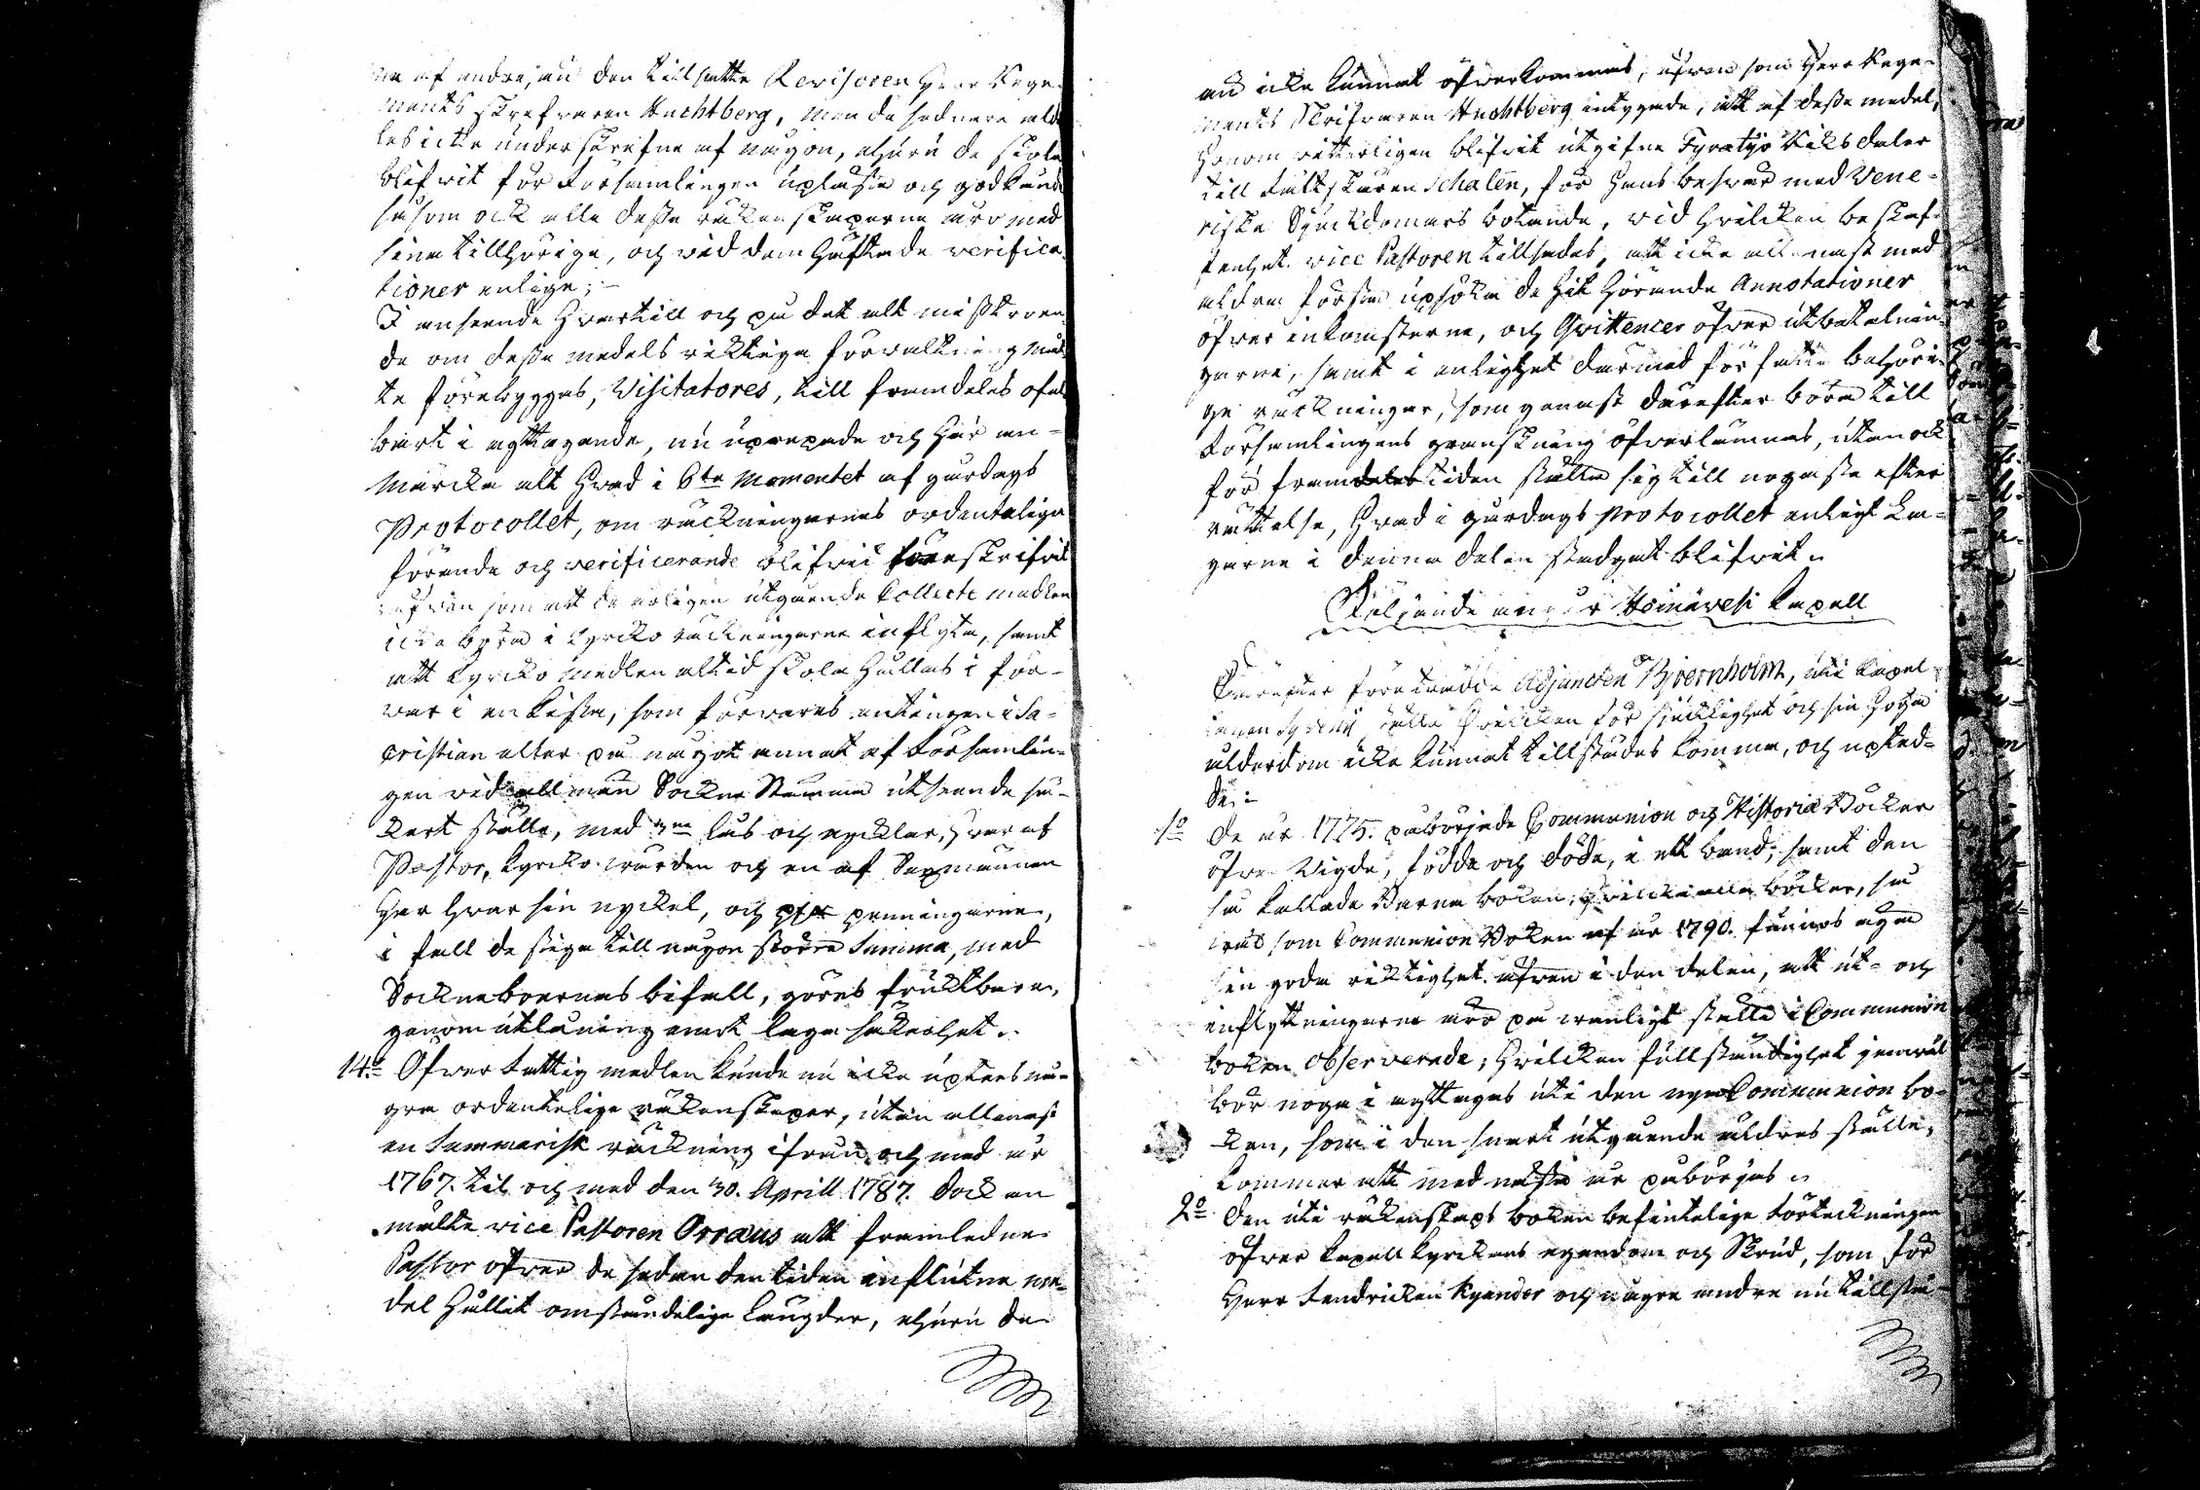 af andra, än den tillsatte Revisoren Herr Rege-
ments Skrifvaren Huchtberg, men de sednare all-
les icke underskrefne af någon, ehuru de skola
blifvit för Församlingen upläste och godkände
såsom ock alla desse räkenskaperne äro med
sina tillhörige, och vid dem häftade verifica-
tioner enlige; -
I anseende hvartill och på det alt misstroen-
de om desse medels riktiga förvaltning må-
te förebyggas, Visitatores, till framdeles ofel-
bart i agttagande, nu uprepade och här an-
märcka alt hvad i 6te Momentet af gårdags
Protocollet, om räckningarnes ordenteliga
förande och verificerande blifvit föreskrifvit
äfven som att de årligen utgående Collecte medlen
böra i kyrcko räckningarne inflyta, samt
att kyrcko medlen altid skola hållas i för-
var i en kista, som förvaras antingen i Sa-
cristian eller på något annat af Församlin-
gen vid allmän Sockne Stämma utseende sä-
kert ställe, med 3ne lås och nycklar, hvaraf
Pastor, kyrcko-värden och en af Sexmännen
har hvar sin nyckel, och penningarne,
i fall de stiga till någon större Summa, med
Sockneboernes bifall, göres fruktbara,
genom utlåning emot laga säkerhet.
14:o Öfver Fattig medlen kunde nu icke uptees nå-
gra ordentelige räkenskaper, utan allenast
en Summarisk räckning ifrån och med år
1767. til och med den 30. Aprill 1787. dock an-
mälte vice Pastoren Orraus att framledne
Pastor öfver de sedan den tiden influtne me-
del hållit omständelige längder, ehuru de
nu icke kunnat öfverkommas, äfven som Herr Rege-
ments Skrifvaren Huchtberg intygade, att af desse medel,
honom vitterligen blifvit utgifne Fyratijo Riksdaler
till Fältskären Schalen, för hans besvär med Vene-
riske Sjuckdomars botande, vid hvilcken beskaf-
fenhet vice Pastoren tillsades, att icke allenast med
aldra första upsöka de hit hörande Annotationer
öfver inkomsterne, och Qvittencer öfver utbetalnin-
garne, samt i enlighet därmed författa behöri-
ge räckningar, som genast därefter böra till
Församlingens granskning öfverlämnas, utan ock
för framdeles tiden ställa sig till nogaste efter
rättelse, hvad i gårdags protocollet enligt La-
garne i denna delen stadgat blifvit.
Följande angår Heinävesi Capell
Därefter företrädde Adjuncten Bjoernholm, uti Capel-
lanen ställe hvilcken för sjucklighet och sin höga
ålderdom icke kunnat tillstädes komma, och upted-
de:
1:o De år 1775. påbörjade Communion och Historiæ Böcker
öfver Vigde, födde och döde, i ett band; samt den
så kallade Barna boken; hvilcka alla böcker, så
väl som Communion Boken af år 1790. funnos ega
sin goda riktighet äfven i den delen, att ut- och
inflyttningarne äro på vanligt ställe i Communion
boken observerade; hvilcken fullständighet jemväl
bör noga i agttagas uti den nya Communion bo-
ken, som i den snart utgående äldres ställe,
kommer att med nästa år påbörjas.
2:o Den uti räkenskaps boken befintelige Förteckningen
öfver Capell kyrckans egendom och Skrud, som för
Herr Fendricken Kyander och några andra nu tillstä-